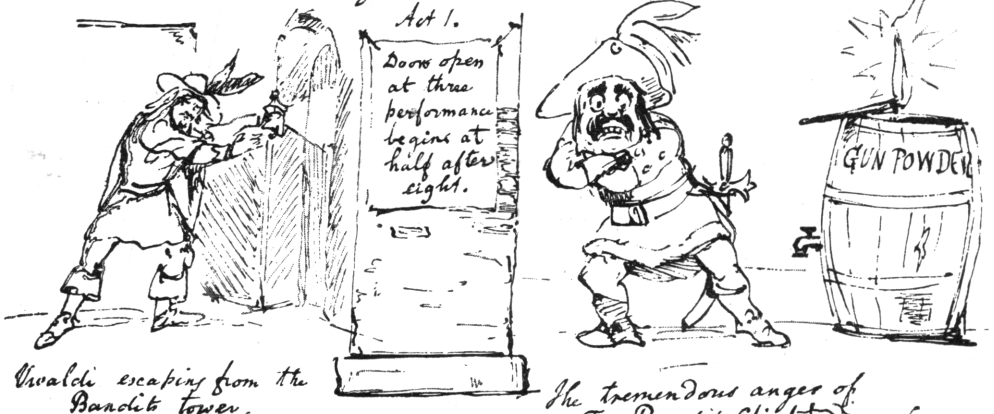 Act 1.
Doors open
at three
performance
begins at
half after
eight.
GUN POWDER
Vivaldi escaping from the
Bandits tower.
The tremendous anger of